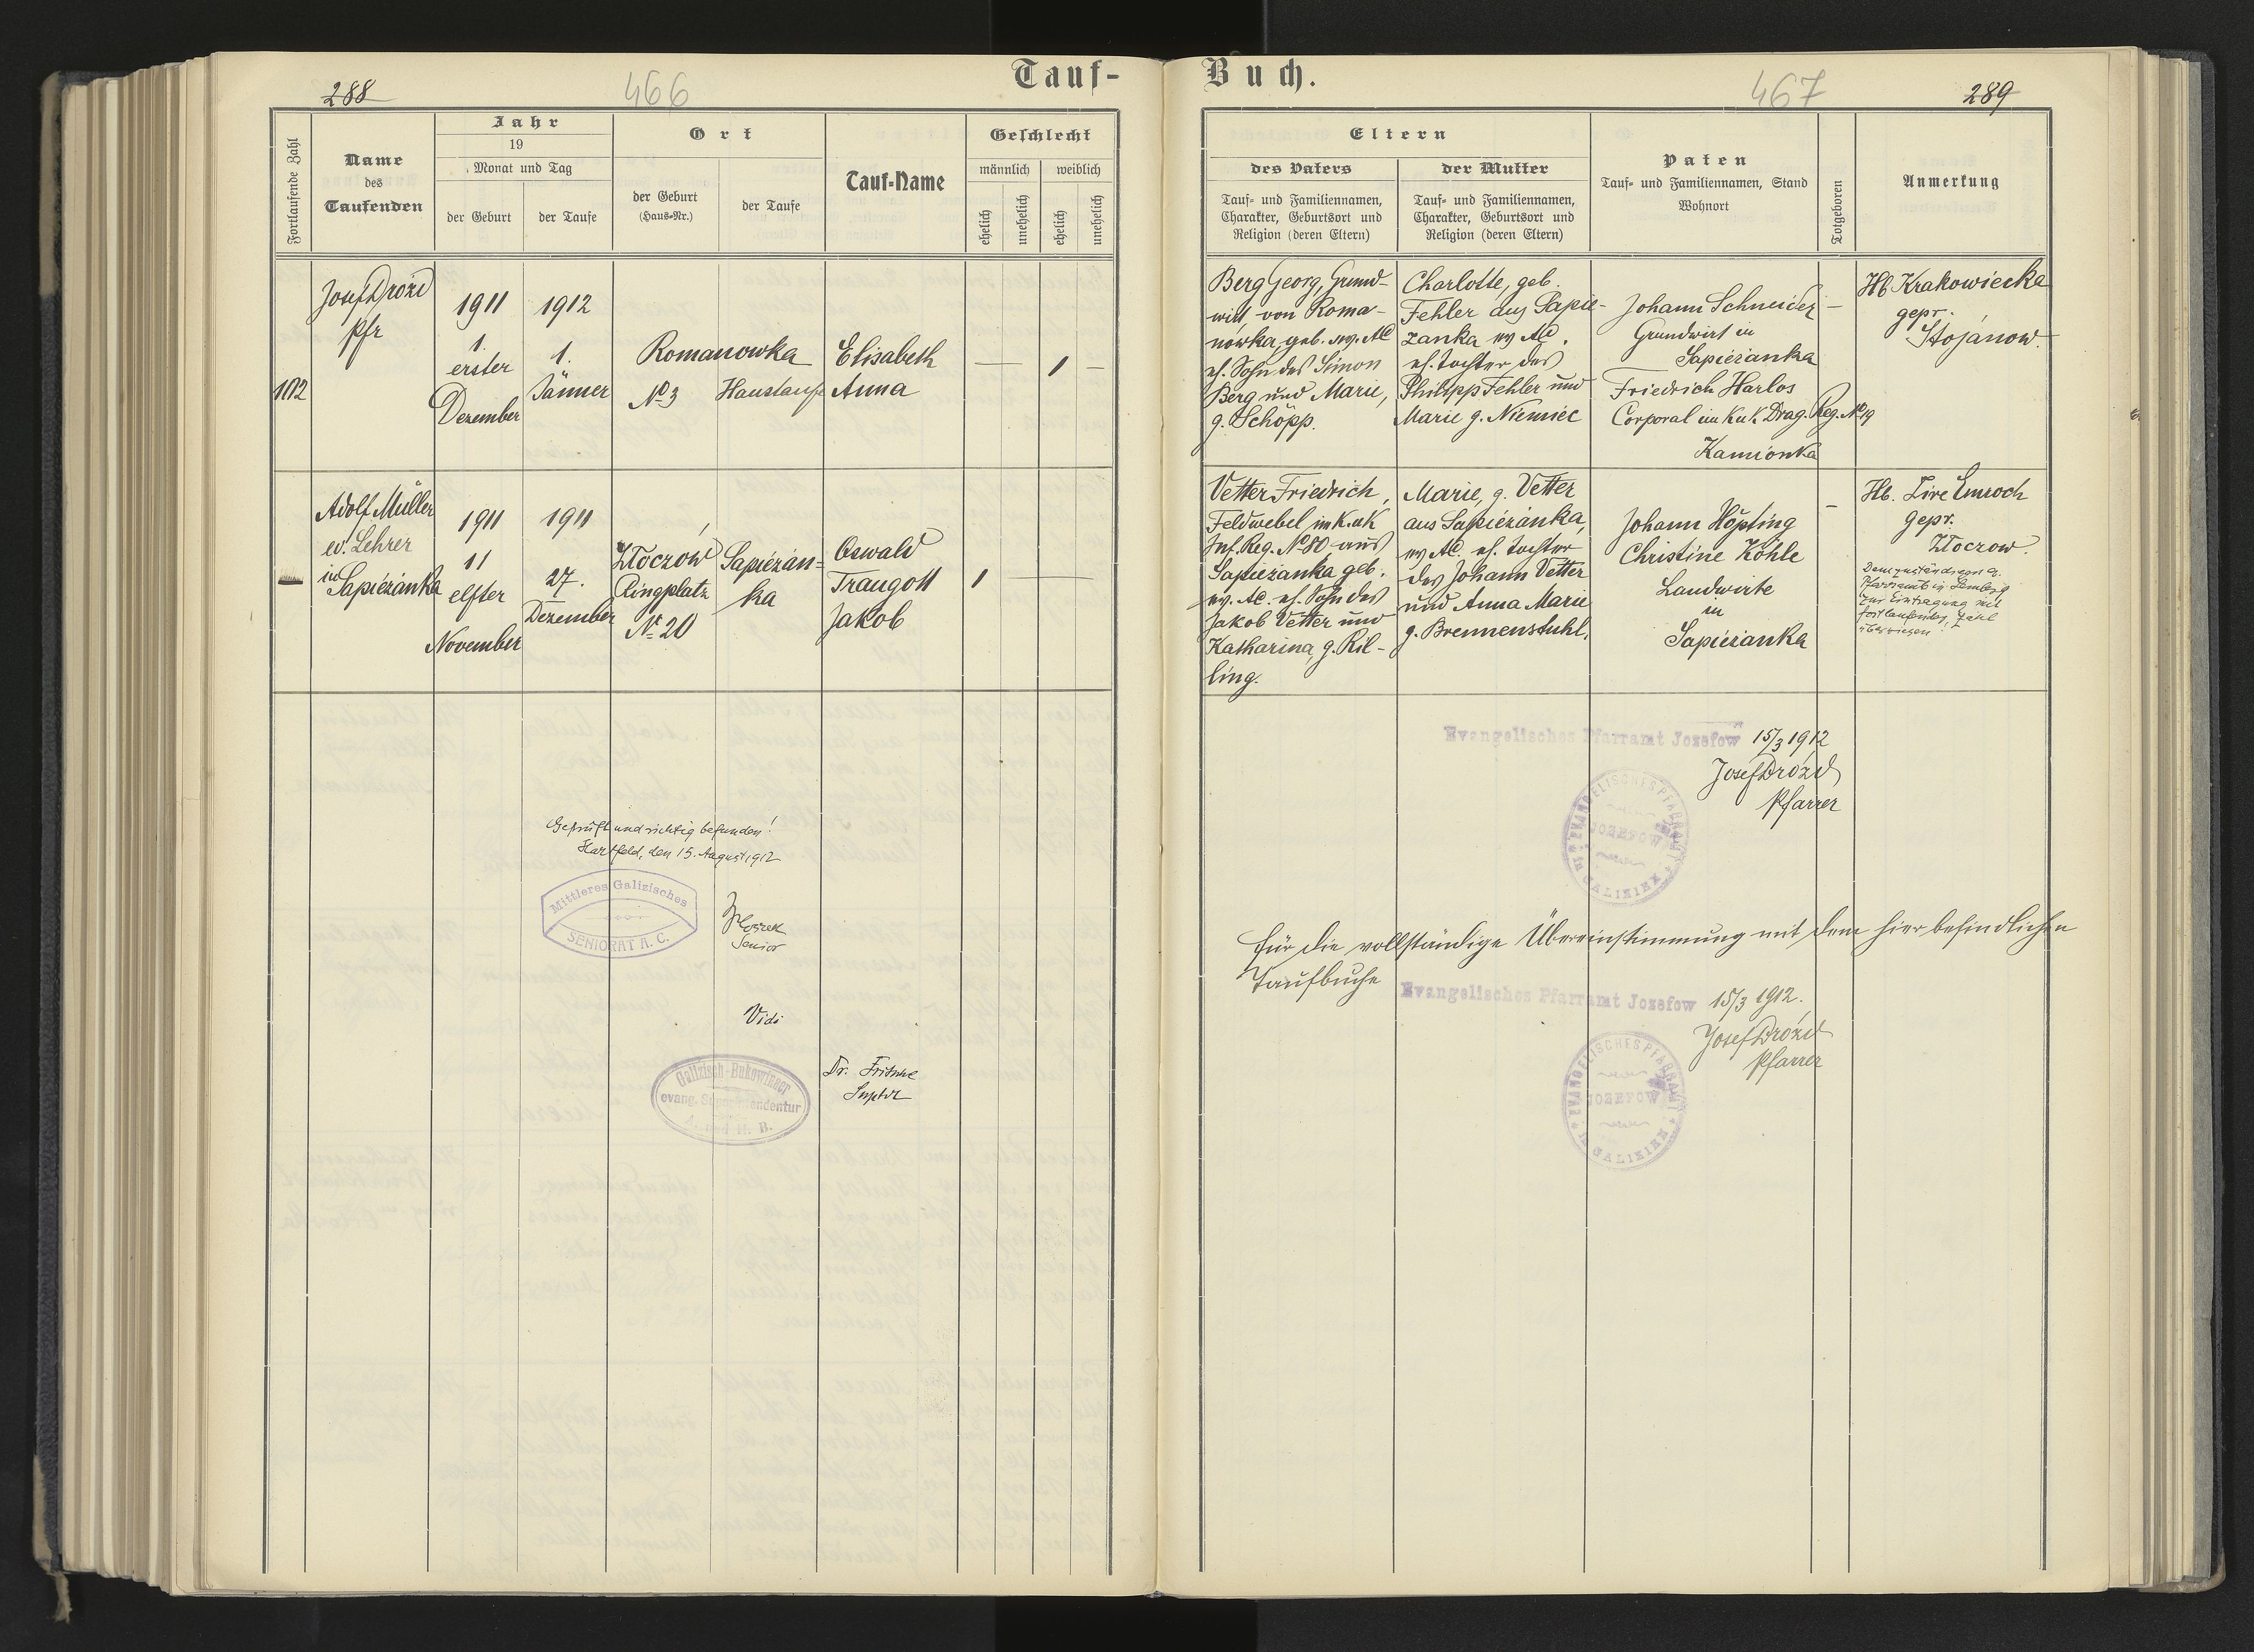 288
466
Tauf-
Fortlaufende Zahl
Name
des
Taufenden
Jahr
19
Monat und Tag
der Geburt
der Taufe
Ort
der Geburt
(Haus-Nr.)
der Taufe
Tauf-Name
Geschlecht
männlich
weiblich
ehelich
unehelich
ehelich
unehelich
Josef Drozd
Pfr
1911
1.
erster
Dezember
1912
1.
Jänner
Romanowka
No 3
Haustaufe
Elisabeth
Anna
—
1
—
Adolf Müller
ev. Lehrer
in
Sapieżanka
1911
11
elfter
November
1911
27.
Dezember
Złoczów
Ringplatz
No 20
Sapieżan=
ka
Oswald
Traugott
Jakob
1
—
Geprüft und richtig befunden!
Hartfeld, den 15. August 1912
Mittleres Galizisches
SENIORAT A. C.
Senior
Vidi
Galizisch-Bukowinaer
evang. Superintendentur
A. und H. B.
Dr. Fritsche
Suptdt
Buch.
467
289
Eltern
des Vaters
Tauf- und Familiennamen,
Charakter, Geburtsort und
Religion (deren Eltern)
der Mutter
Tauf- und Familiennamen,
Charakter, Geburtsort und
Religion (deren Eltern)
Paten
Tauf- und Familiennamen, Stand
Wohnort
Totgeboren
Anmerkung
Berg Georg, Grund-
wirt von Roma-
nówka, geb. ev. AC
eh. Sohn des Simon
Berg und Marie,
g. Schöpp.
Charlotte, geb.
Fehler aus Sapie-
żanka ev AC.
eh. Tochter des
Philipp Fehler und
Marie g. Niemiec
Johann Schneider
Grundwirt in
Sapieżanka
Friedrich Harlos
Corporal im K u K. Drag. Reg. No 19
Kamionka
—
Hb Krakowiecka
gepr.
Stojanow
Vetter Friedrich,
Feldwebel im K. u K
Inf. Reg. No 80 aus
Sapieżanka geb.
ev. AC. eh. Sohn des
Jakob Vetter und
Katharina, g. Ril-
ling.
Marie, g. Vetter
aus Sapieżanka,
ev AC. eh. Tochter
des Johann Vetter
und Anna Marie
g. Brennenstuhl.
Johann Höpting
Christine Köhle
Landwirte
in
Sapieżanka
—
Hb. Zire Emroch
gepr.
Złoczow.
Dem zuständigen ev.
Pfarramte in Lemberg
zur Eintragung mit
fortlaufender Zahl
überwiesen
Evangelisches Pfarramt Jozefow 15/3 1912
Josef Drozd
Pfarrer
EVANGELISCHES PFARRAMT
JOZEFOW
GALIZIEN
Für die vollständige Übereinstimmung mit dem hier befindlichen
Taufbuche
Evangelisches Pfarramt Jozefow 15/3 1912.
Josef Drozd
Pfarrer
EVANGELISCHES PFARRAMT
JOZEFOW
GALIZIEN